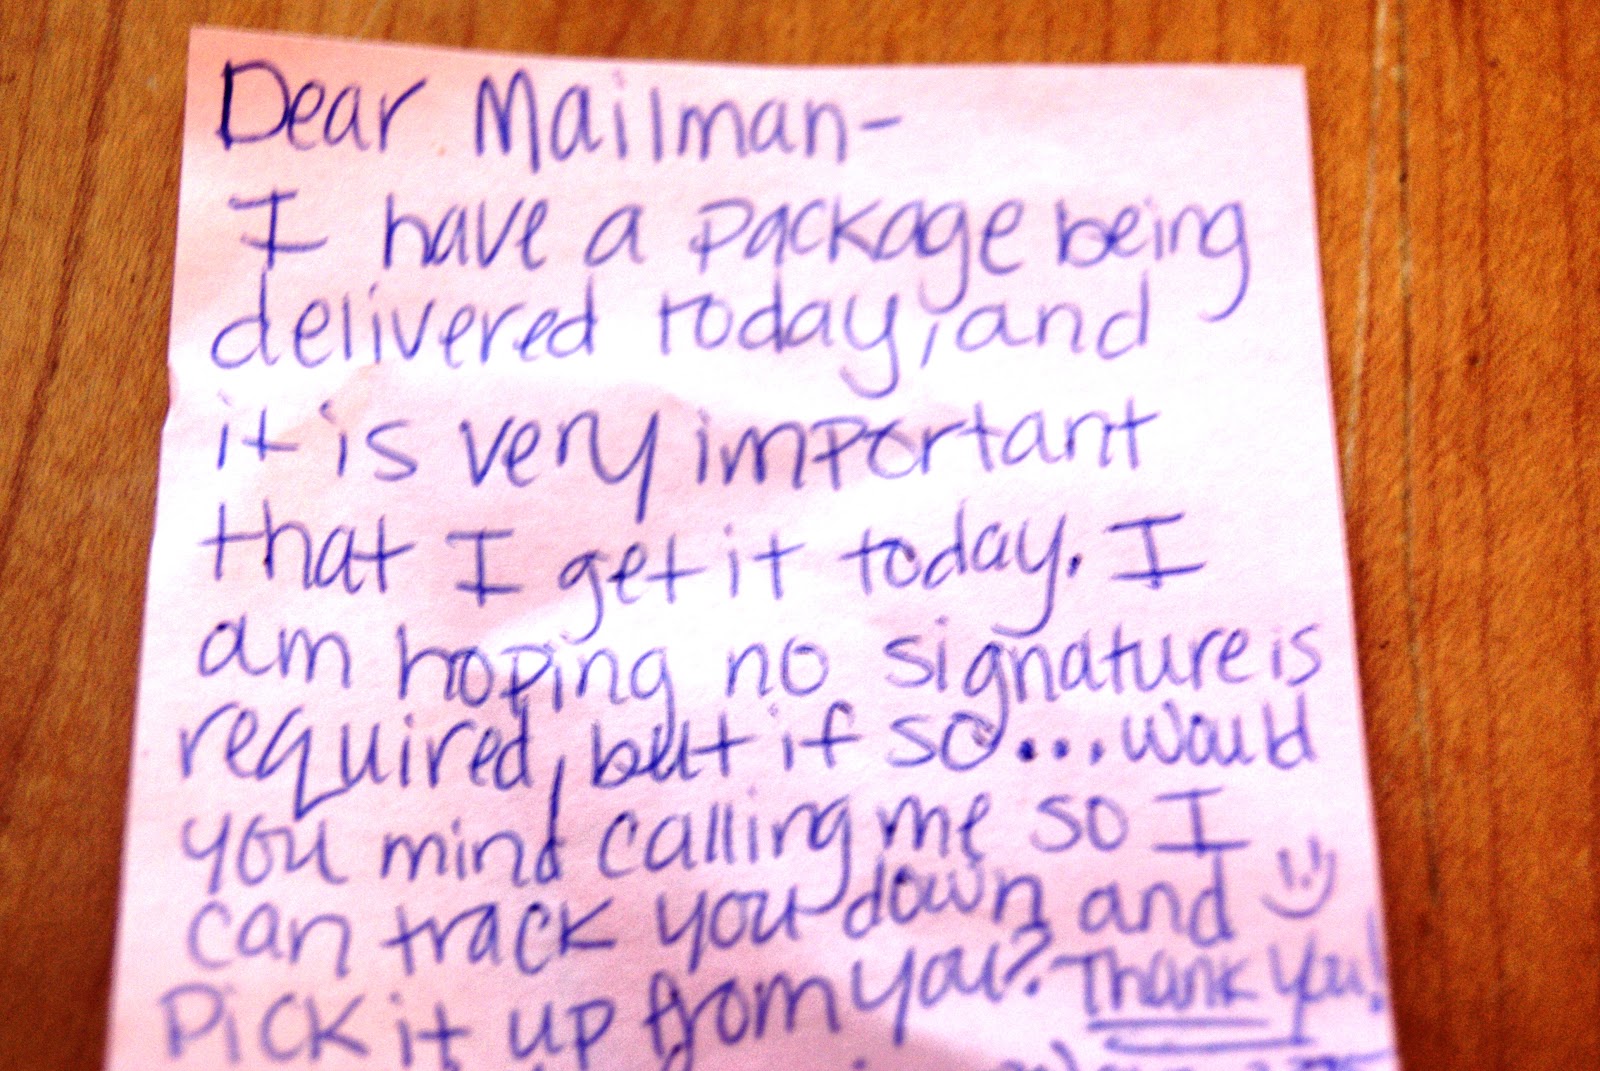 Dear Mailman-
I have a package being
delivered today, and
it is very important
that I get it today. I
am hoping no signature is
required, but if so... would
you mind calling me so I
can track you down and :)
pick it up from you? Thank you!